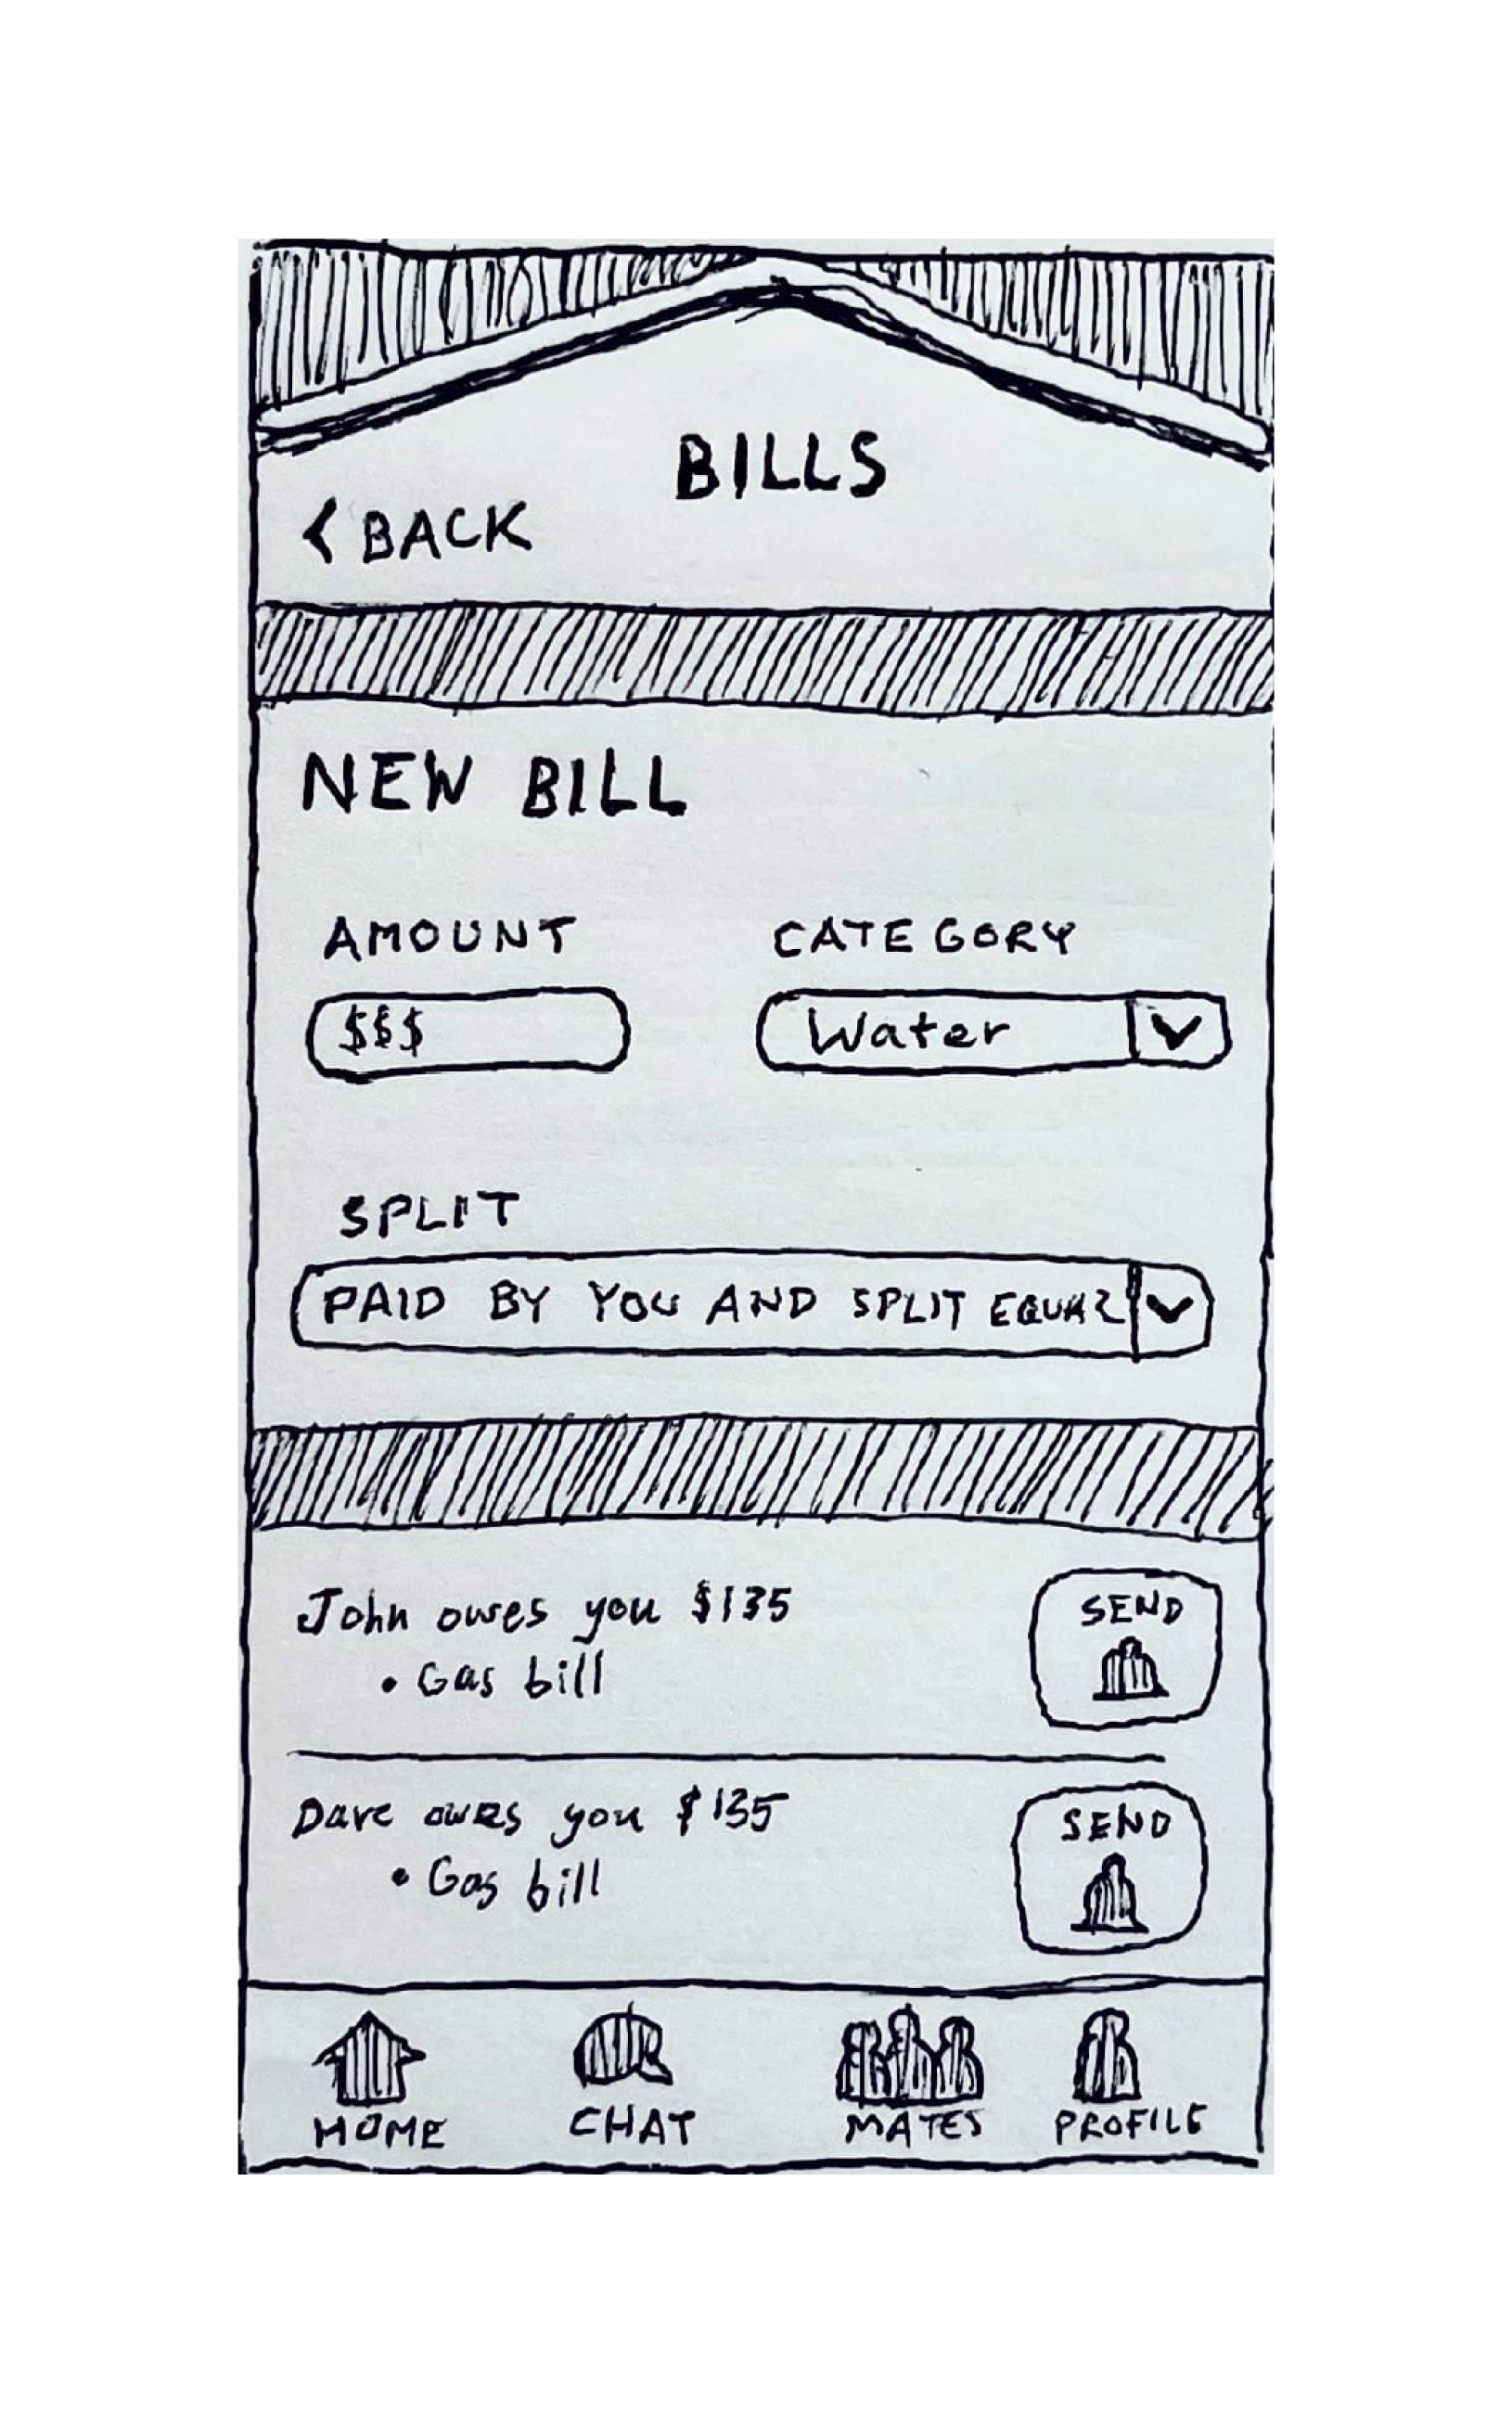 BILLS
< BACK
NEW BILL
AMOUNT
CATEGORY
$$$
Water
SPLIT
PAID BY YOU AND SPLIT EQUAL
John owes you $135
• Gas bill
SEND
Dave owes you $135
• Gas bill
SEND
HOME
CHAT
MATES
PROFILE